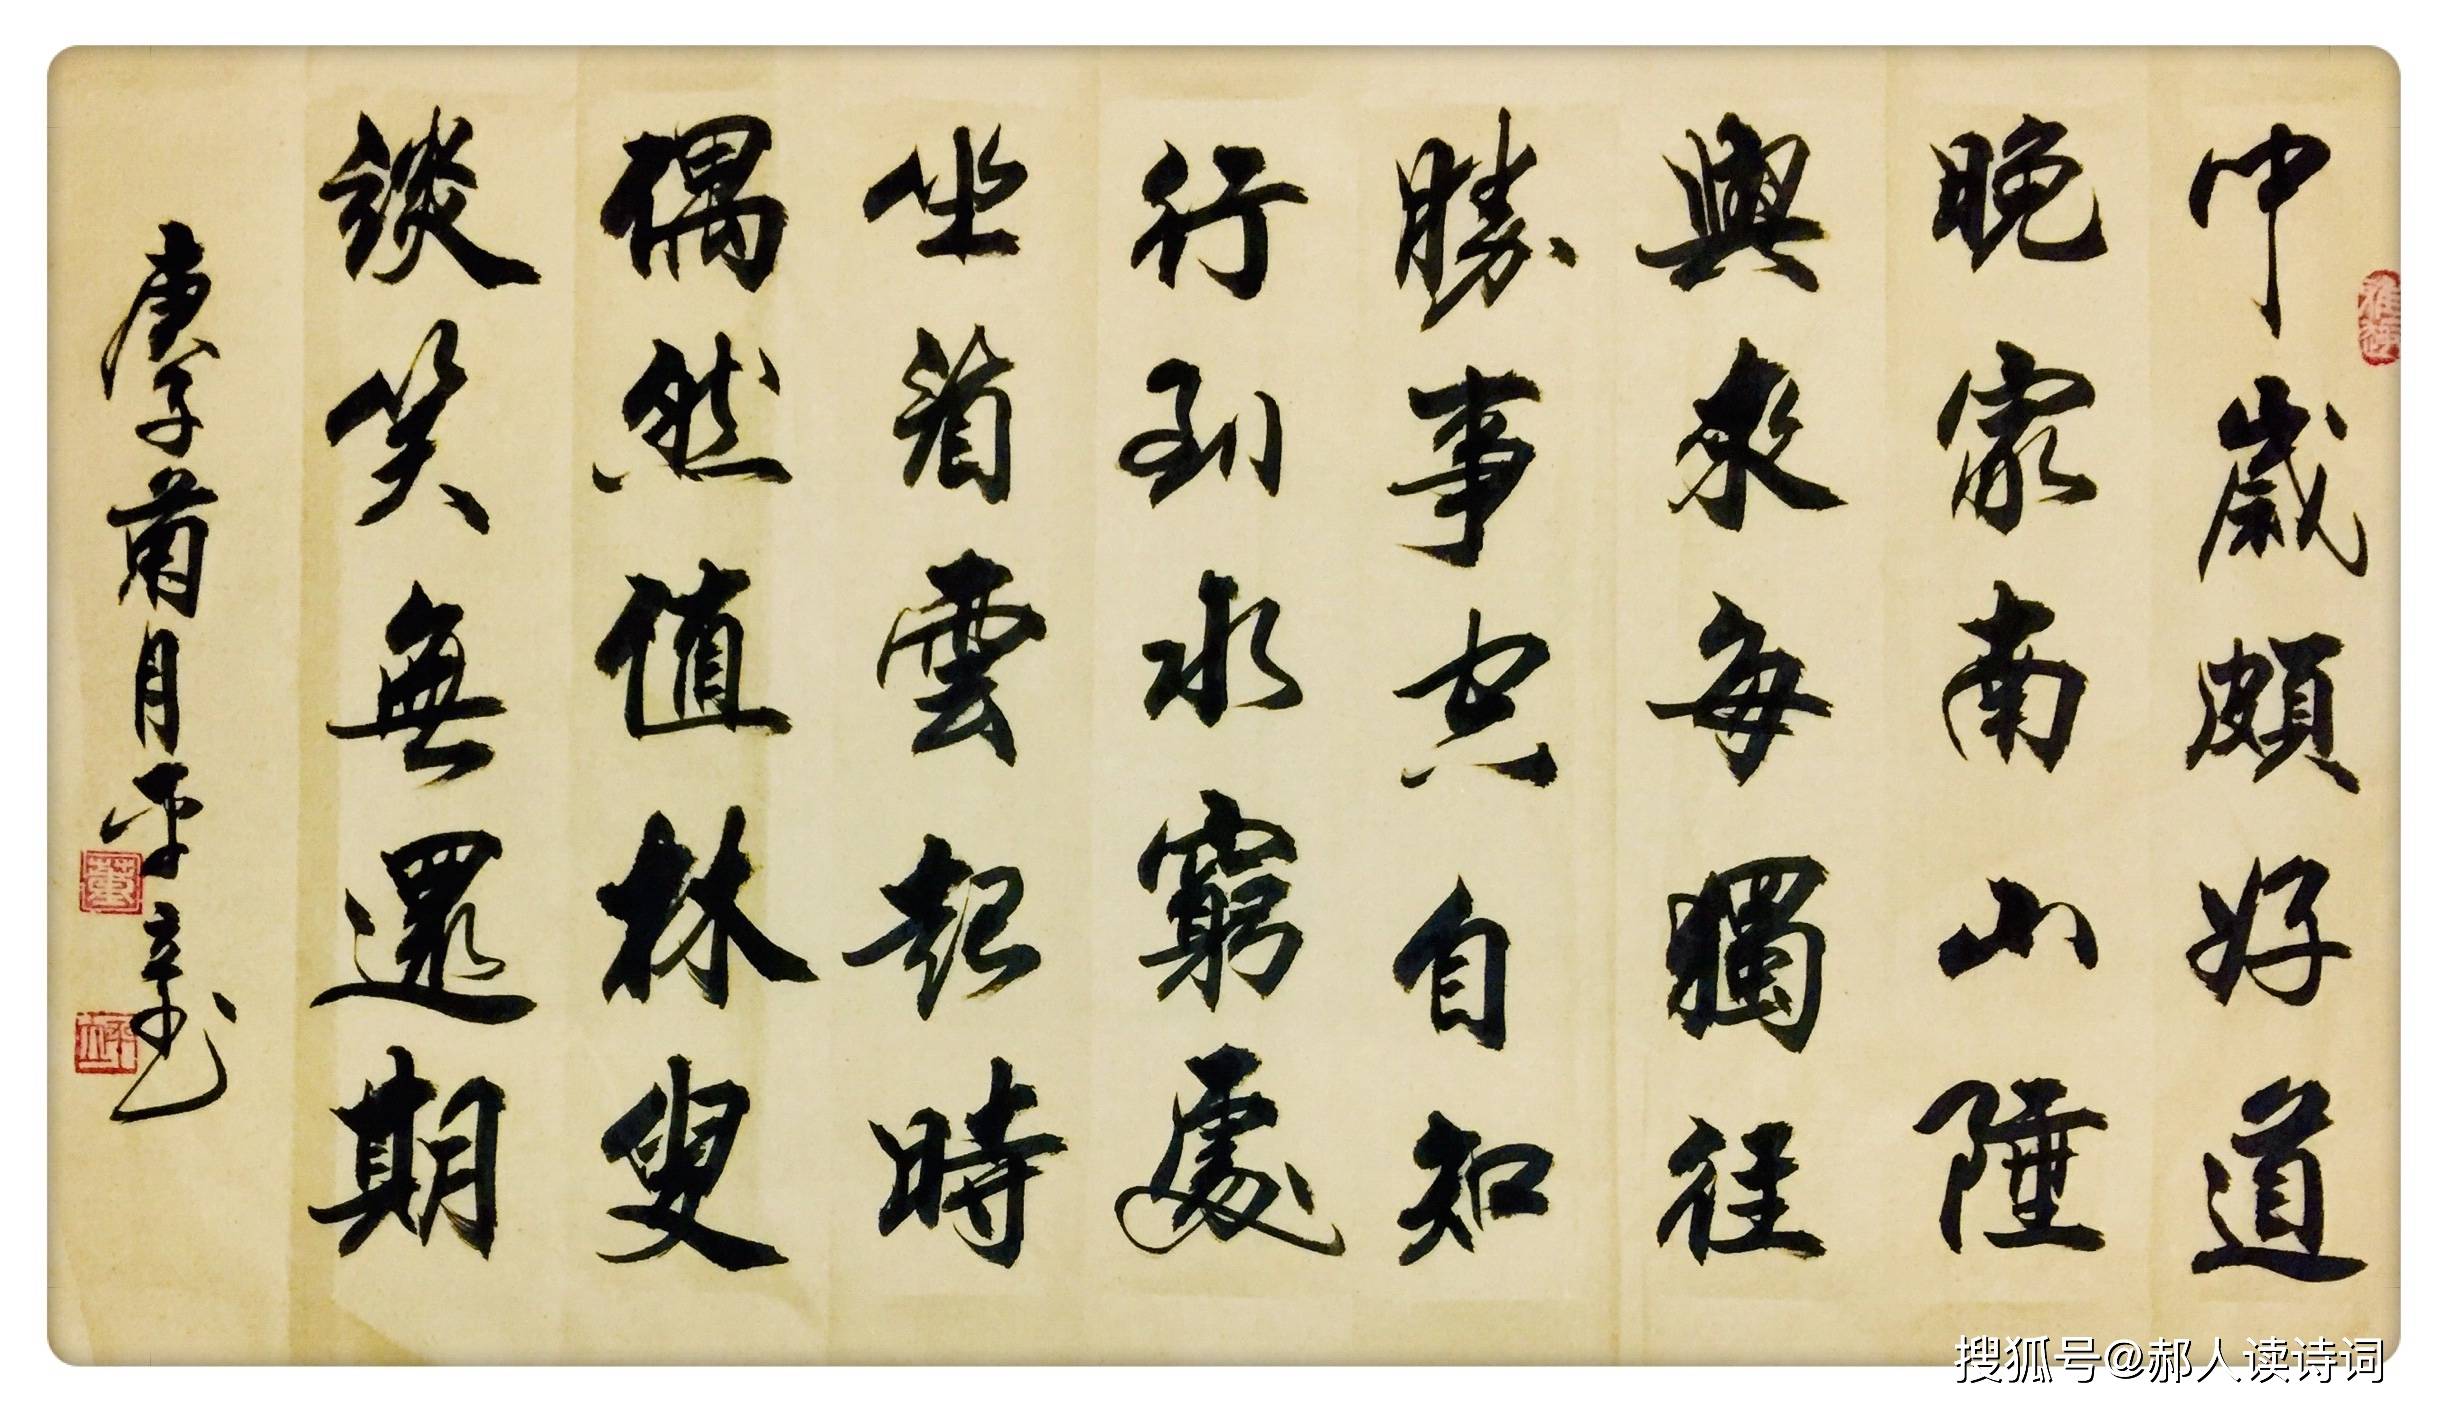 中歲頗好道
晚家南山陲
興來每獨往
勝事空自知
行到水窮處
坐看雲起時
偶然值林叟
談笑無還期
庚子菊月平立書
搜狐号@郝人读诗词